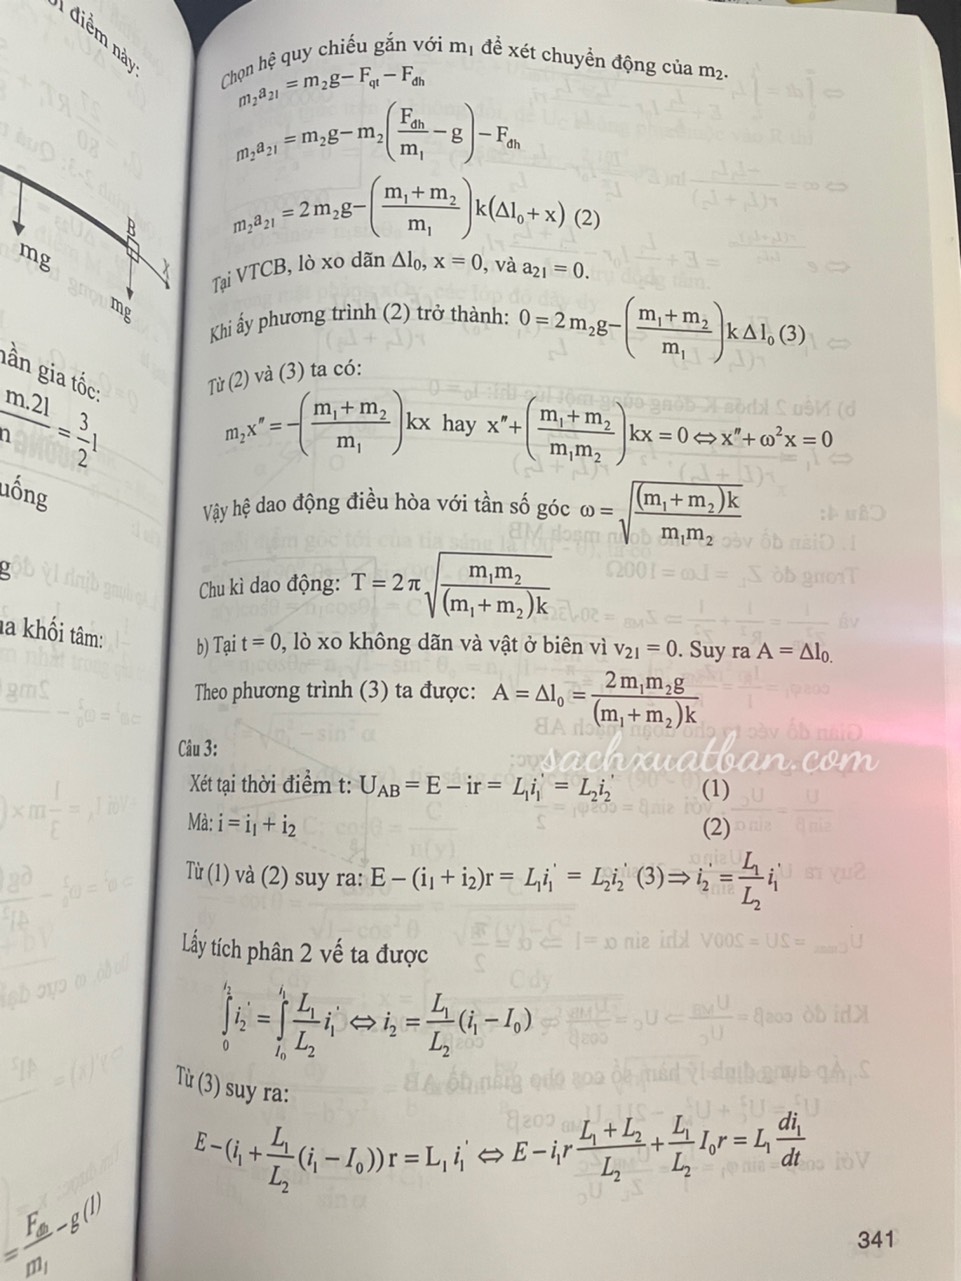 điểm này:
B
mg
mg
gia tốc:
m.2l = 3/2 l
uống
g
khối tâm:
= F_đh/m₁ − g (1)
Chọn hệ quy chiếu gắn với m₁ để xét chuyển động của m₂.
m₂a₂₁ = m₂g − F_qt − F_đh
m₂a₂₁ = m₂g − m₂(F_đh/m₁ − g) − F_đh
m₂a₂₁ = 2m₂g − ((m₁ + m₂)/m₁)k(Δl₀ + x) (2)
Tại VTCB, lò xo dãn Δl₀, x = 0, và a₂₁ = 0.
Khi ấy phương trình (2) trở thành: 0 = 2m₂g − ((m₁ + m₂)/m₁)kΔl₀ (3)
Từ (2) và (3) ta có:
m₂x″ = −((m₁ + m₂)/m₁)kx hay x″ + ((m₁ + m₂)/(m₁m₂))kx = 0 ⇔ x″ + ω²x = 0
Vậy hệ dao động điều hòa với tần số góc ω = √((m₁ + m₂)k/(m₁m₂))
Chu kì dao động: T = 2π√(m₁m₂/((m₁ + m₂)k))
b) Tại t = 0, lò xo không dãn và vật ở biên vì v₂₁ = 0. Suy ra A = Δl₀.
Theo phương trình (3) ta được: A = Δl₀ = 2m₁m₂g/((m₁ + m₂)k)
sachxuatban.com
Câu 3:
Xét tại thời điểm t: U_AB = E − ir = L₁i₁' = L₂i₂' (1)
Mà: i = i₁ + i₂ (2)
Từ (1) và (2) suy ra: E − (i₁ + i₂)r = L₁i₁' = L₂i₂' (3) ⇒ i₂' = L₁/L₂ i₁'
Lấy tích phân 2 vế ta được
∫₀^(i₂) i₂' = ∫_(I₀)^(i₁) L₁/L₂ i₁' ⇔ i₂ = L₁/L₂ (i₁ − I₀)
Từ (3) suy ra:
E − (i₁ + L₁/L₂ (i₁ − I₀))r = L₁i₁' ⇔ E − i₁r (L₁ + L₂)/L₂ + L₁/L₂ I₀r = L₁ di₁/dt
341